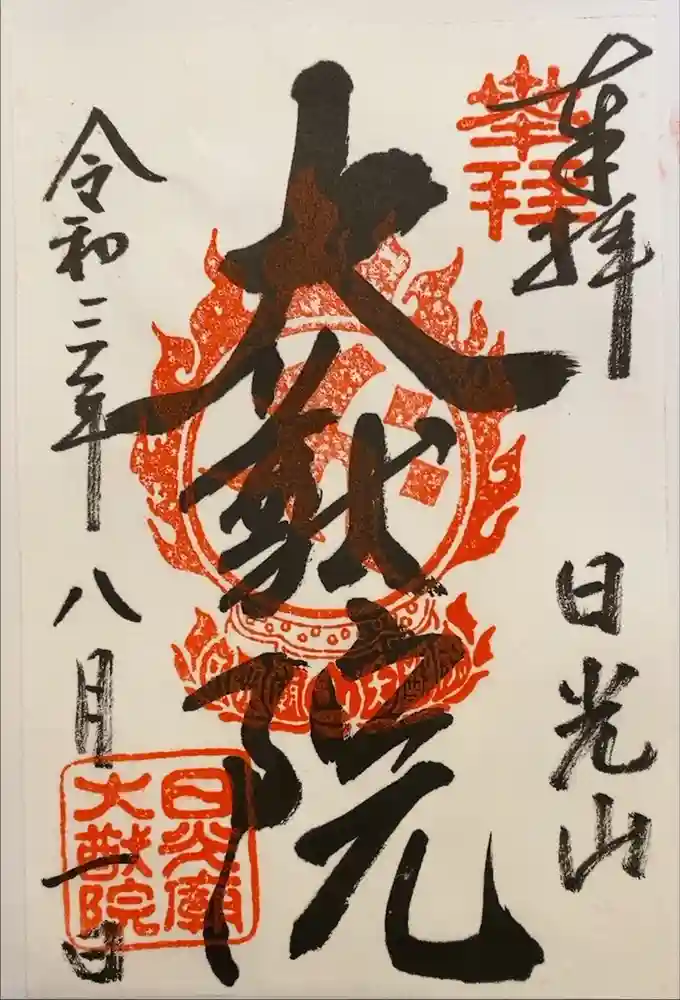 奉拝
日光山
奉拝
大猷院
令和二年八月一日
日光廟
大猷院